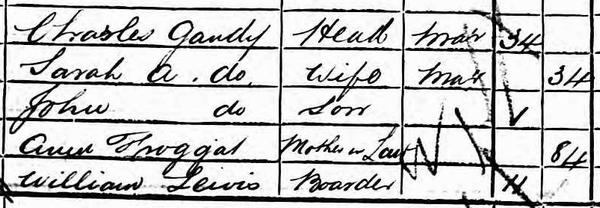 Charles Gandy Head Mar 34
Sarah A. do. Wife Mar 34
John do Son
Ann Froggat Mother in Law W 84
William Lewis Boarder 11